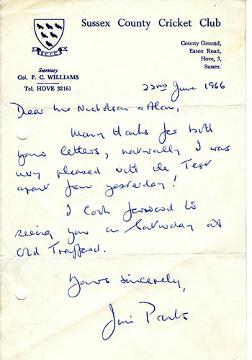 Sussex County Cricket Club
S.C.C.C.
Secretary
Col. P. G. WILLIAMS
Tel. HOVE 32161
County Ground,
Eaton Road,
Hove, 3,
Sussex.
22nd June 1966
Dear Mr Nicholson & Alan,
Many thanks for both
your letters, naturally I was
very pleased with the Test
apart from yesterday!
I look forward to
seeing you on Saturday at
Old Trafford.
Yours sincerely,
Jim Parks